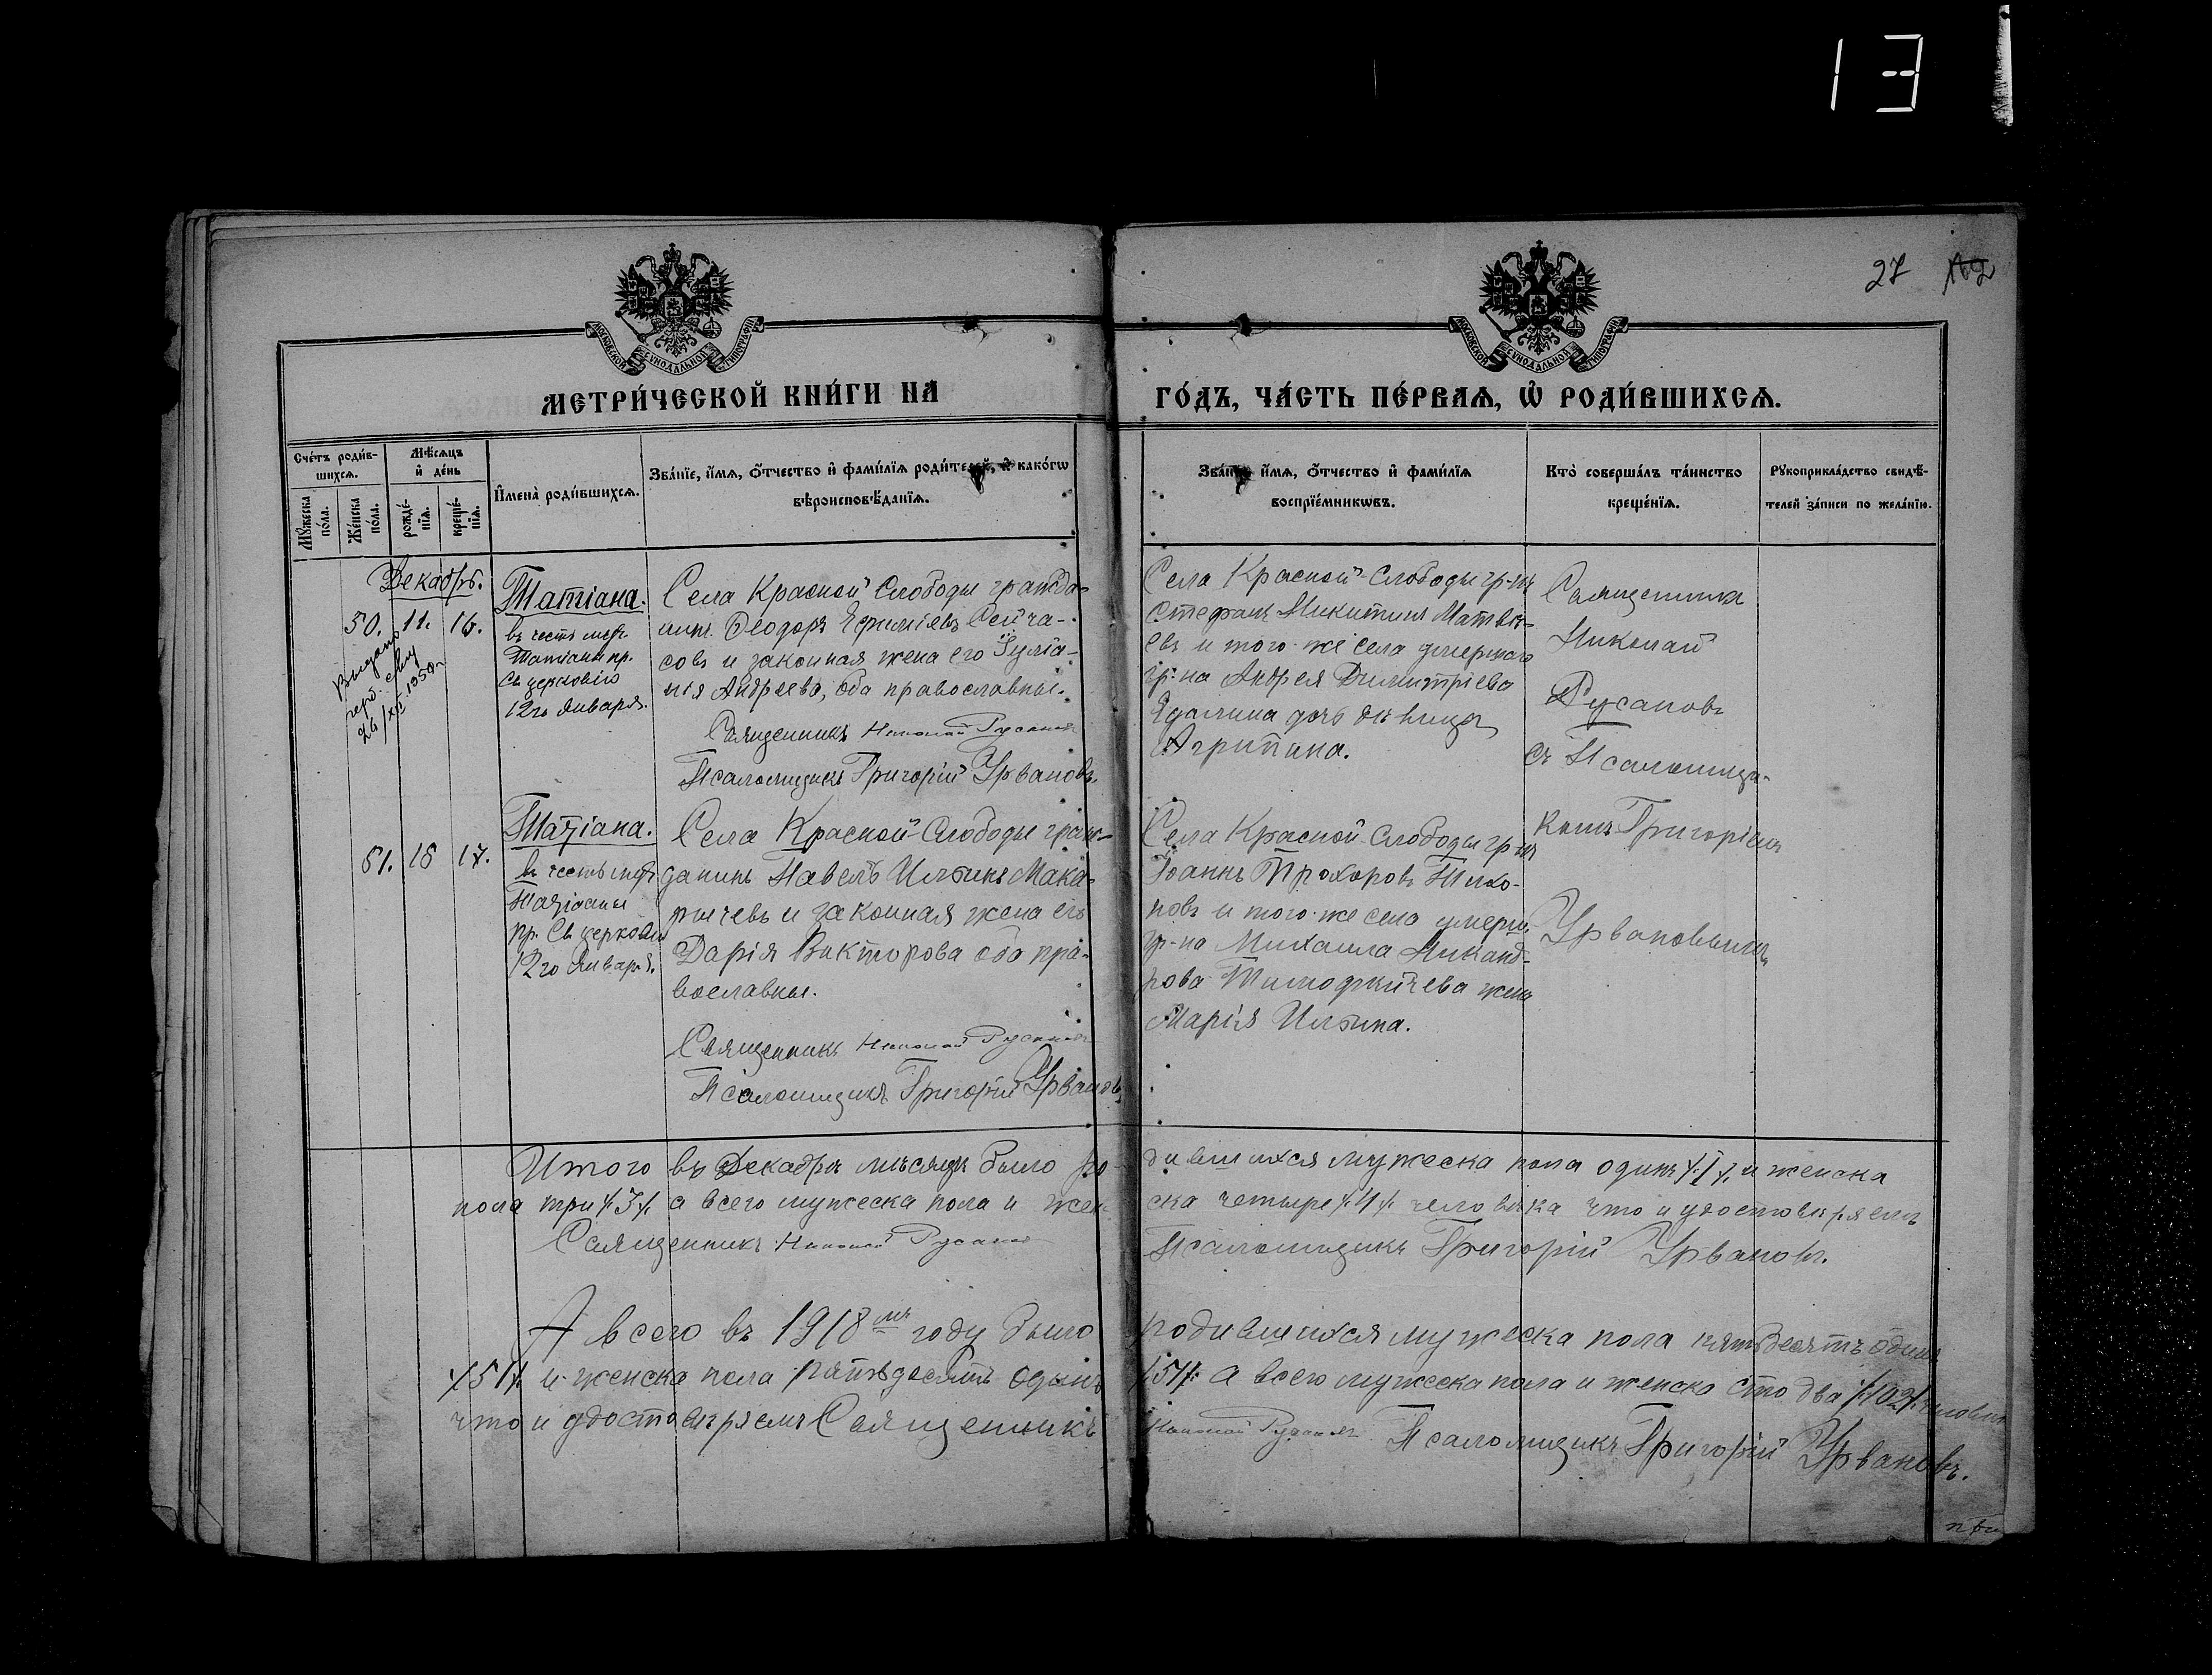 13
27
МОСКОВСКОЙ СУНОДАЛЬНОЙ ТИПОГРАФІИ
МОСКОВСКОЙ СУНОДАЛЬНОЙ ТИПОГРАФІИ
МЕТРИ́ЧЕСКОЙ КНИ́ГИ НА
ГО́ДЪ, ЧА́СТЬ ПЕ́РВАѦ, Ѡ҆ РОДИ́ВШИХСѦ.
Сче́тъ роди́в-
шихсѧ.
Мꙋ́жеска по́ла.
Же́нска по́ла.
Мѣ́сѧцъ
и҆ де́нь
рожде́-
нїѧ.
креще́-
нїѧ.
И҆мена̀ роди́вшихсѧ.
Зва́нїе, и҆́мѧ, ѻ҆́тчество и҆ фами́лїѧ роди́телей, и҆ како́гѡ
вѣроисповѣ́данїѧ.
Зва́нїе, и҆́мѧ, ѻ҆́тчество и҆ фами́лїѧ
воспрїе́мникѡвъ.
Кто̀ соверша́лъ та́инство
креще́нїѧ.
Рꙋкоприкла́дство свидѣ́-
телей за́писи по жела́нїю.
Декабрь.
50. 11. 16.
Выдано
герб.
26/XII-1950 г
Татіана.
въ честь муч.
Татіаны пр.
Св церковію
12го Января.
Села Красной Слободы гражда-
нинъ Ѳеодоръ Ефиміевъ Сейча-
совъ и законная жена его Іуліа-
нія Андреева, оба православные.
Священникъ Николай Русановъ
Псаломщикъ Григорій Урвановъ.
Села Красной Слободы гр-нъ
Стефанъ Никитинъ Матвѣ-
евъ и того-же села умершаго
гр-на Андрея Димитріева
дочь дѣвица
Агрипина.
Священникъ
Николай
Русановъ
съ Псаломщи-
комъ Григоріемъ
Урвановымъ.
51. 16 17.
Татіана.
въ честь муч.
Татіаны
пр. Св церковію
12го Января.
Села Красной Слободы граж-
данинъ Павелъ Ильинъ Мака-
рычевъ и законная жена его
Дарія Викторова оба пра-
вославные.
Священникъ Николай Русановъ
Псаломщикъ Григорій Урвановъ
Села Красной Слободы гр-нъ
Іоаннъ Прохоровъ Тихо-
новъ и того-же села умерш.
гр-на Михаила Никанд-
рова жена
Марія Ильина.
Итого въ Декабрѣ мѣсяцѣ было ро-
дившихся мужеска пола одинъ /.1/. и женска
пола три /.3/. а всего мужеска пола и жен-
ска четыре /.4/. человѣка что и удостовѣряемъ
Священникъ Николай Русановъ
Псаломщикъ Григорій Урвановъ.
А всего въ 1918мъ году было
родившихся мужеска пола пятьдесятъ одинъ
/51/. и женска пола пятьдесятъ одинъ
/51/. а всего мужеска пола и женска сто два /.102/. человѣка
что и удостовѣряемъ Священникъ
Николай Русановъ Псаломщикъ Григорій Урвановъ.